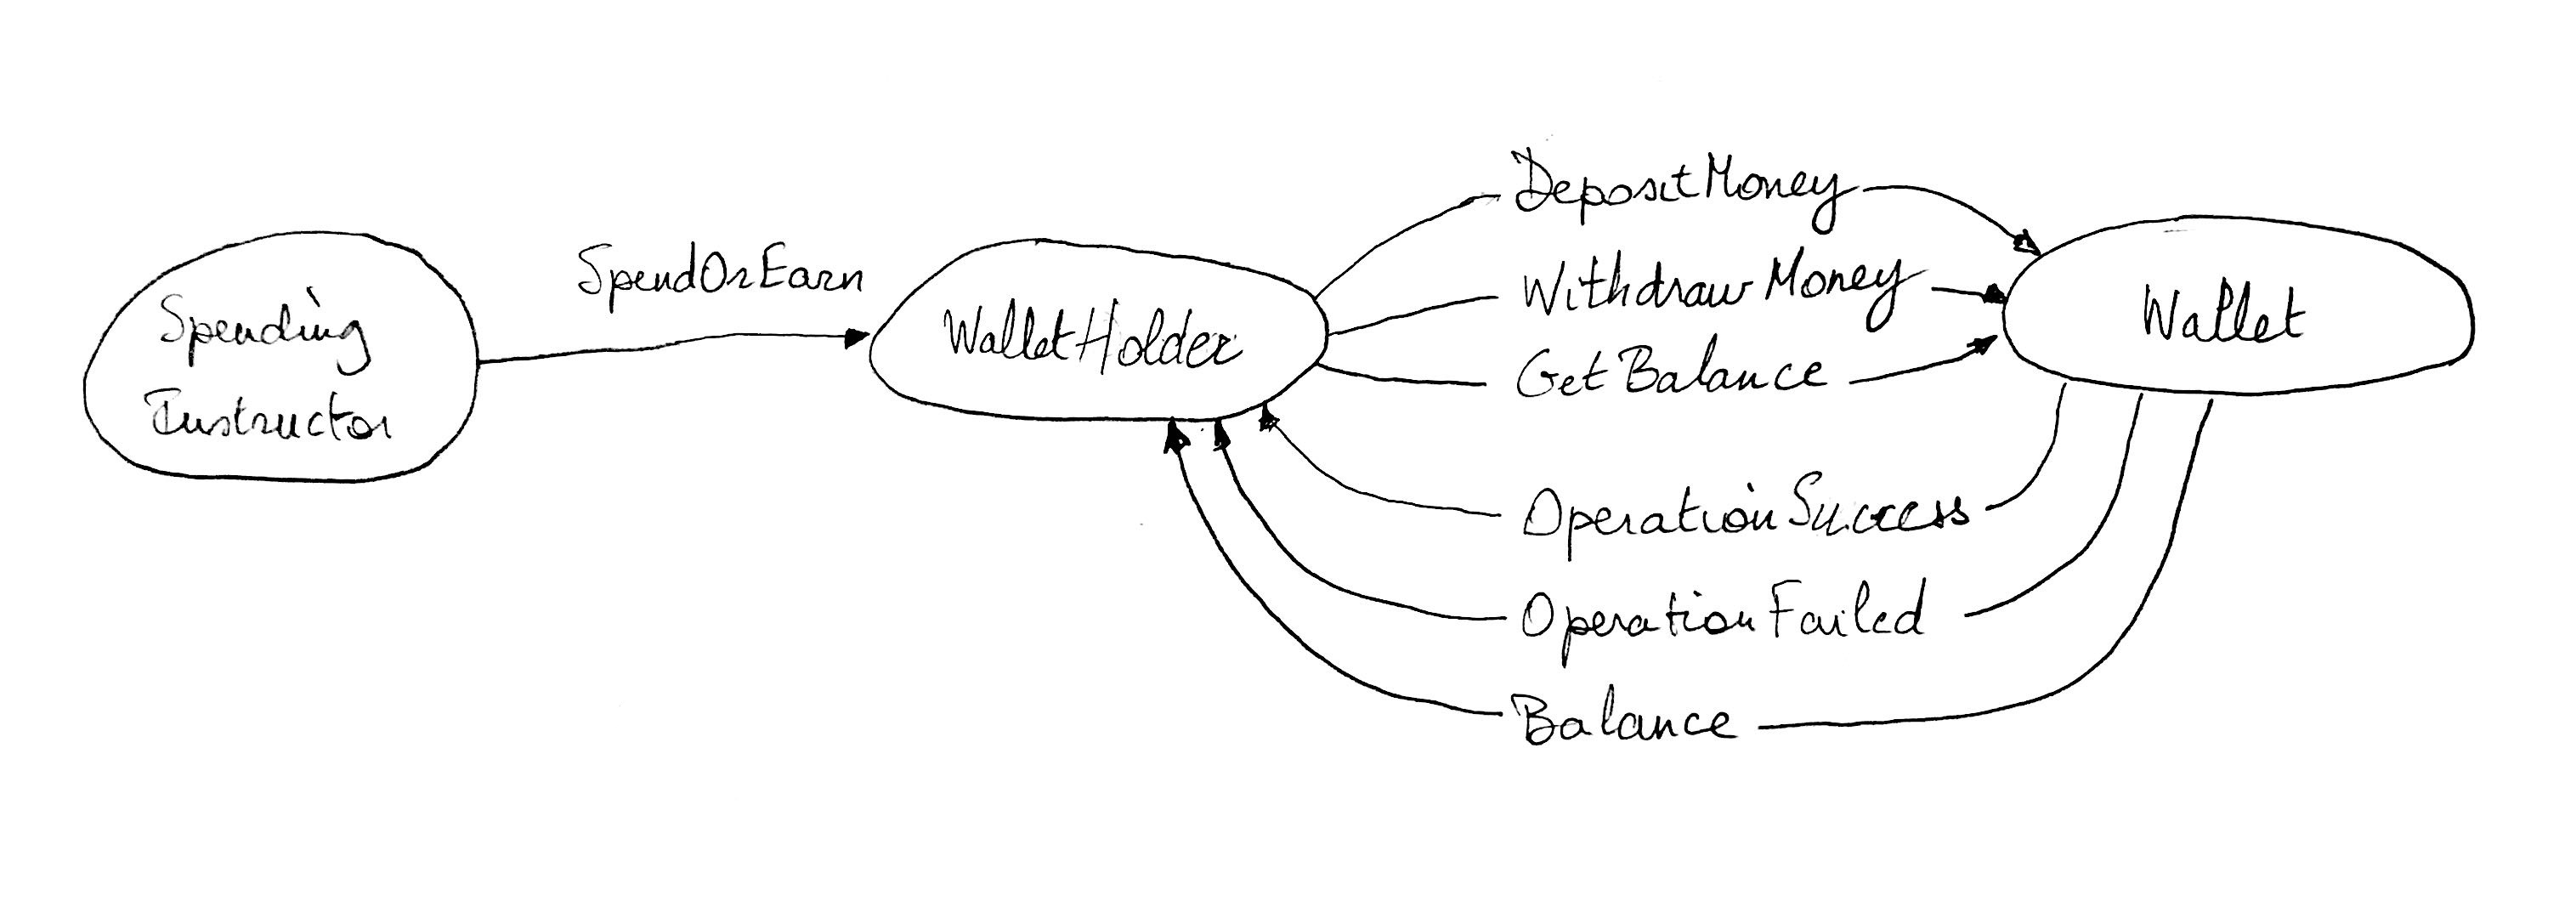 Spending
Instructor
SpendOrEarn
WalletHolder
DepositMoney
WithdrawMoney
GetBalance
OperationSuccess
OperationFailed
Balance
Wallet